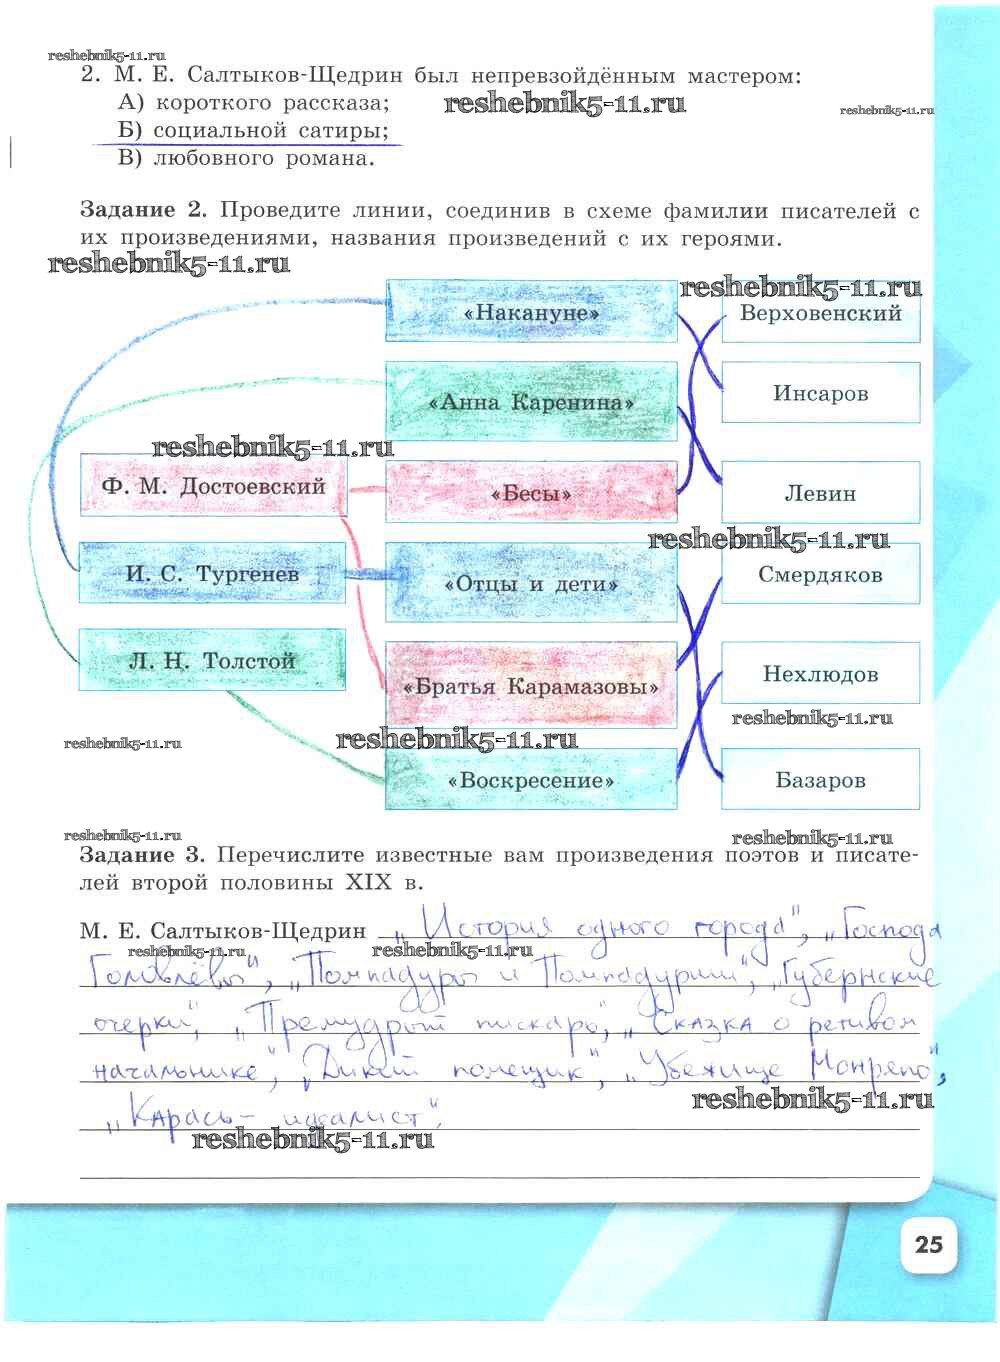 reshebnik5-11.ru
2. М. Е. Салтыков-Щедрин был непревзойдённым мастером:
А) короткого рассказа;
reshebnik5-11.ru
reshebnik5-11.ru
Б) социальной сатиры;
В) любовного романа.
Задание 2. Проведите линии, соединив в схеме фамилии писателей с
их произведениями, названия произведений с их героями.
reshebnik5-11.ru
reshebnik5-11.ru
«Накануне»
Верховенский
«Анна Каренина»
Инсаров
reshebnik5-11.ru
Ф. М. Достоевский
«Бесы»
Левин
reshebnik5-11.ru
И. С. Тургенев
«Отцы и дети»
Смердяков
Л. Н. Толстой
«Братья Карамазовы»
Нехлюдов
reshebnik5-11.ru
reshebnik5-11.ru
reshebnik5-11.ru
«Воскресение»
Базаров
reshebnik5-11.ru
reshebnik5-11.ru
Задание 3. Перечислите известные вам произведения поэтов и писате-
лей второй половины XIX в.
М. Е. Салтыков-Щедрин „История одного города", „Господа
reshebnik5-11.ru
reshebnik5-11.ru
Головлёвы", „Помпадуры и Помпадурши", „Губернские
очерки", „Премудрый пискарь, „Сказка о ретивом
начальнике", „Дикий помещик", „Убежище Монрепо",
reshebnik5-11.ru
„Карась-идеалист".
reshebnik5-11.ru
25